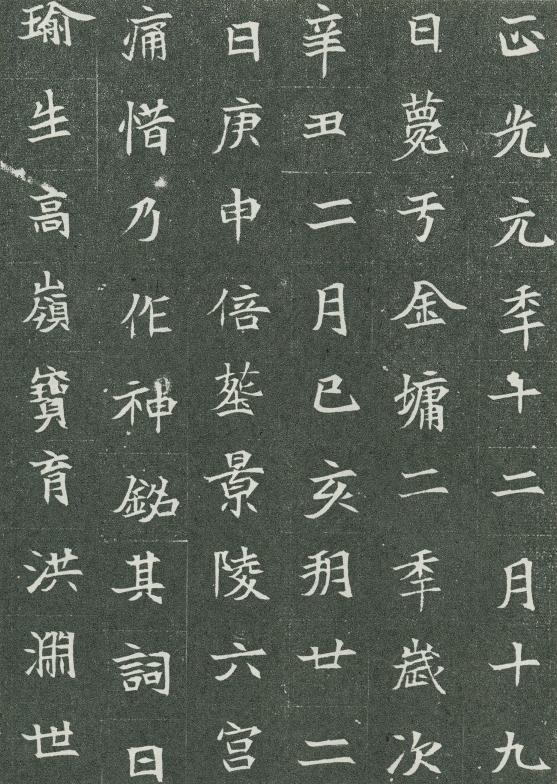 正光元秊十二月十九
日薨于金墉二秊歲次
辛丑二月己亥朔廿二
日庚申倍塟景陵六宮
痛惜乃作神銘其詞曰
瑜生高嶺寶育洪淵世